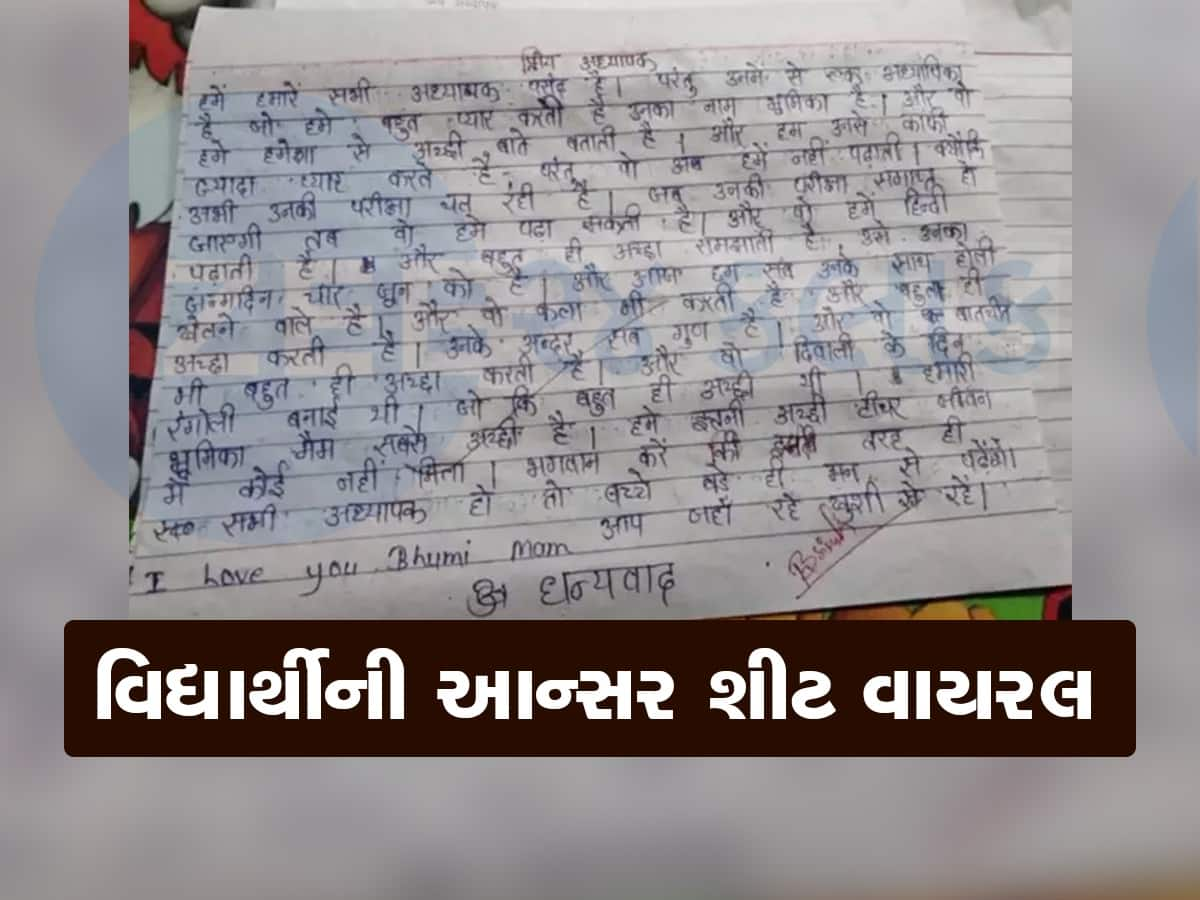 प्रिय अध्यापक
हमें हमारें सभी अध्यापक पसंद है। परंतु उनमें से एक अध्यापिका
है जो हमे बहुत प्यार करती है उनका नाम भुमिका है। और वो
हमे हमेशा से अच्छी बाते बताती है। और हम उनसे काफी
ज्यादा प्यार करते है परंतु वो अब हमें नहीं पढ़ाती। क्योंकि
अभी उनकी परीक्षा चल रही है। जब उनकी परीक्षा समाप्त हो
जाएगी तब वो हमे पढ़ा सकती है। और वो हमें हिन्दी
पढ़ाती है। और बहुत ही अच्छा समझाती है उसे उनका
जन्मदिन चार जून को है। और आज हम सब उनके साथ होली
खेलने वाले है। और वो कला भी करती है और बहुत ही
अच्छा करती है। उनके अन्दर सब गुण है। और वो बातचीत
भी बहुत ही अच्छा करती है। और वो दिवाली के दिन
रंगोली बनाई थी। जो कि बहुत ही अच्छी थी। हमारी
भुमिका मैम सबसे अच्छी है। हमे इतनी अच्छी टीचर जीवन
में कोई नहीं मिला। भगवान करें की इसी तरह ही
सभी अध्यापक हो तो बच्चे बड़े ही मन से पढ़ेंगे।
आप जहाँ रहे खुशी से रहें।
I love you Bhumi Mam
धन्यवाद
વિદ્યાર્થીની આન્સર શીટ વાયરલ